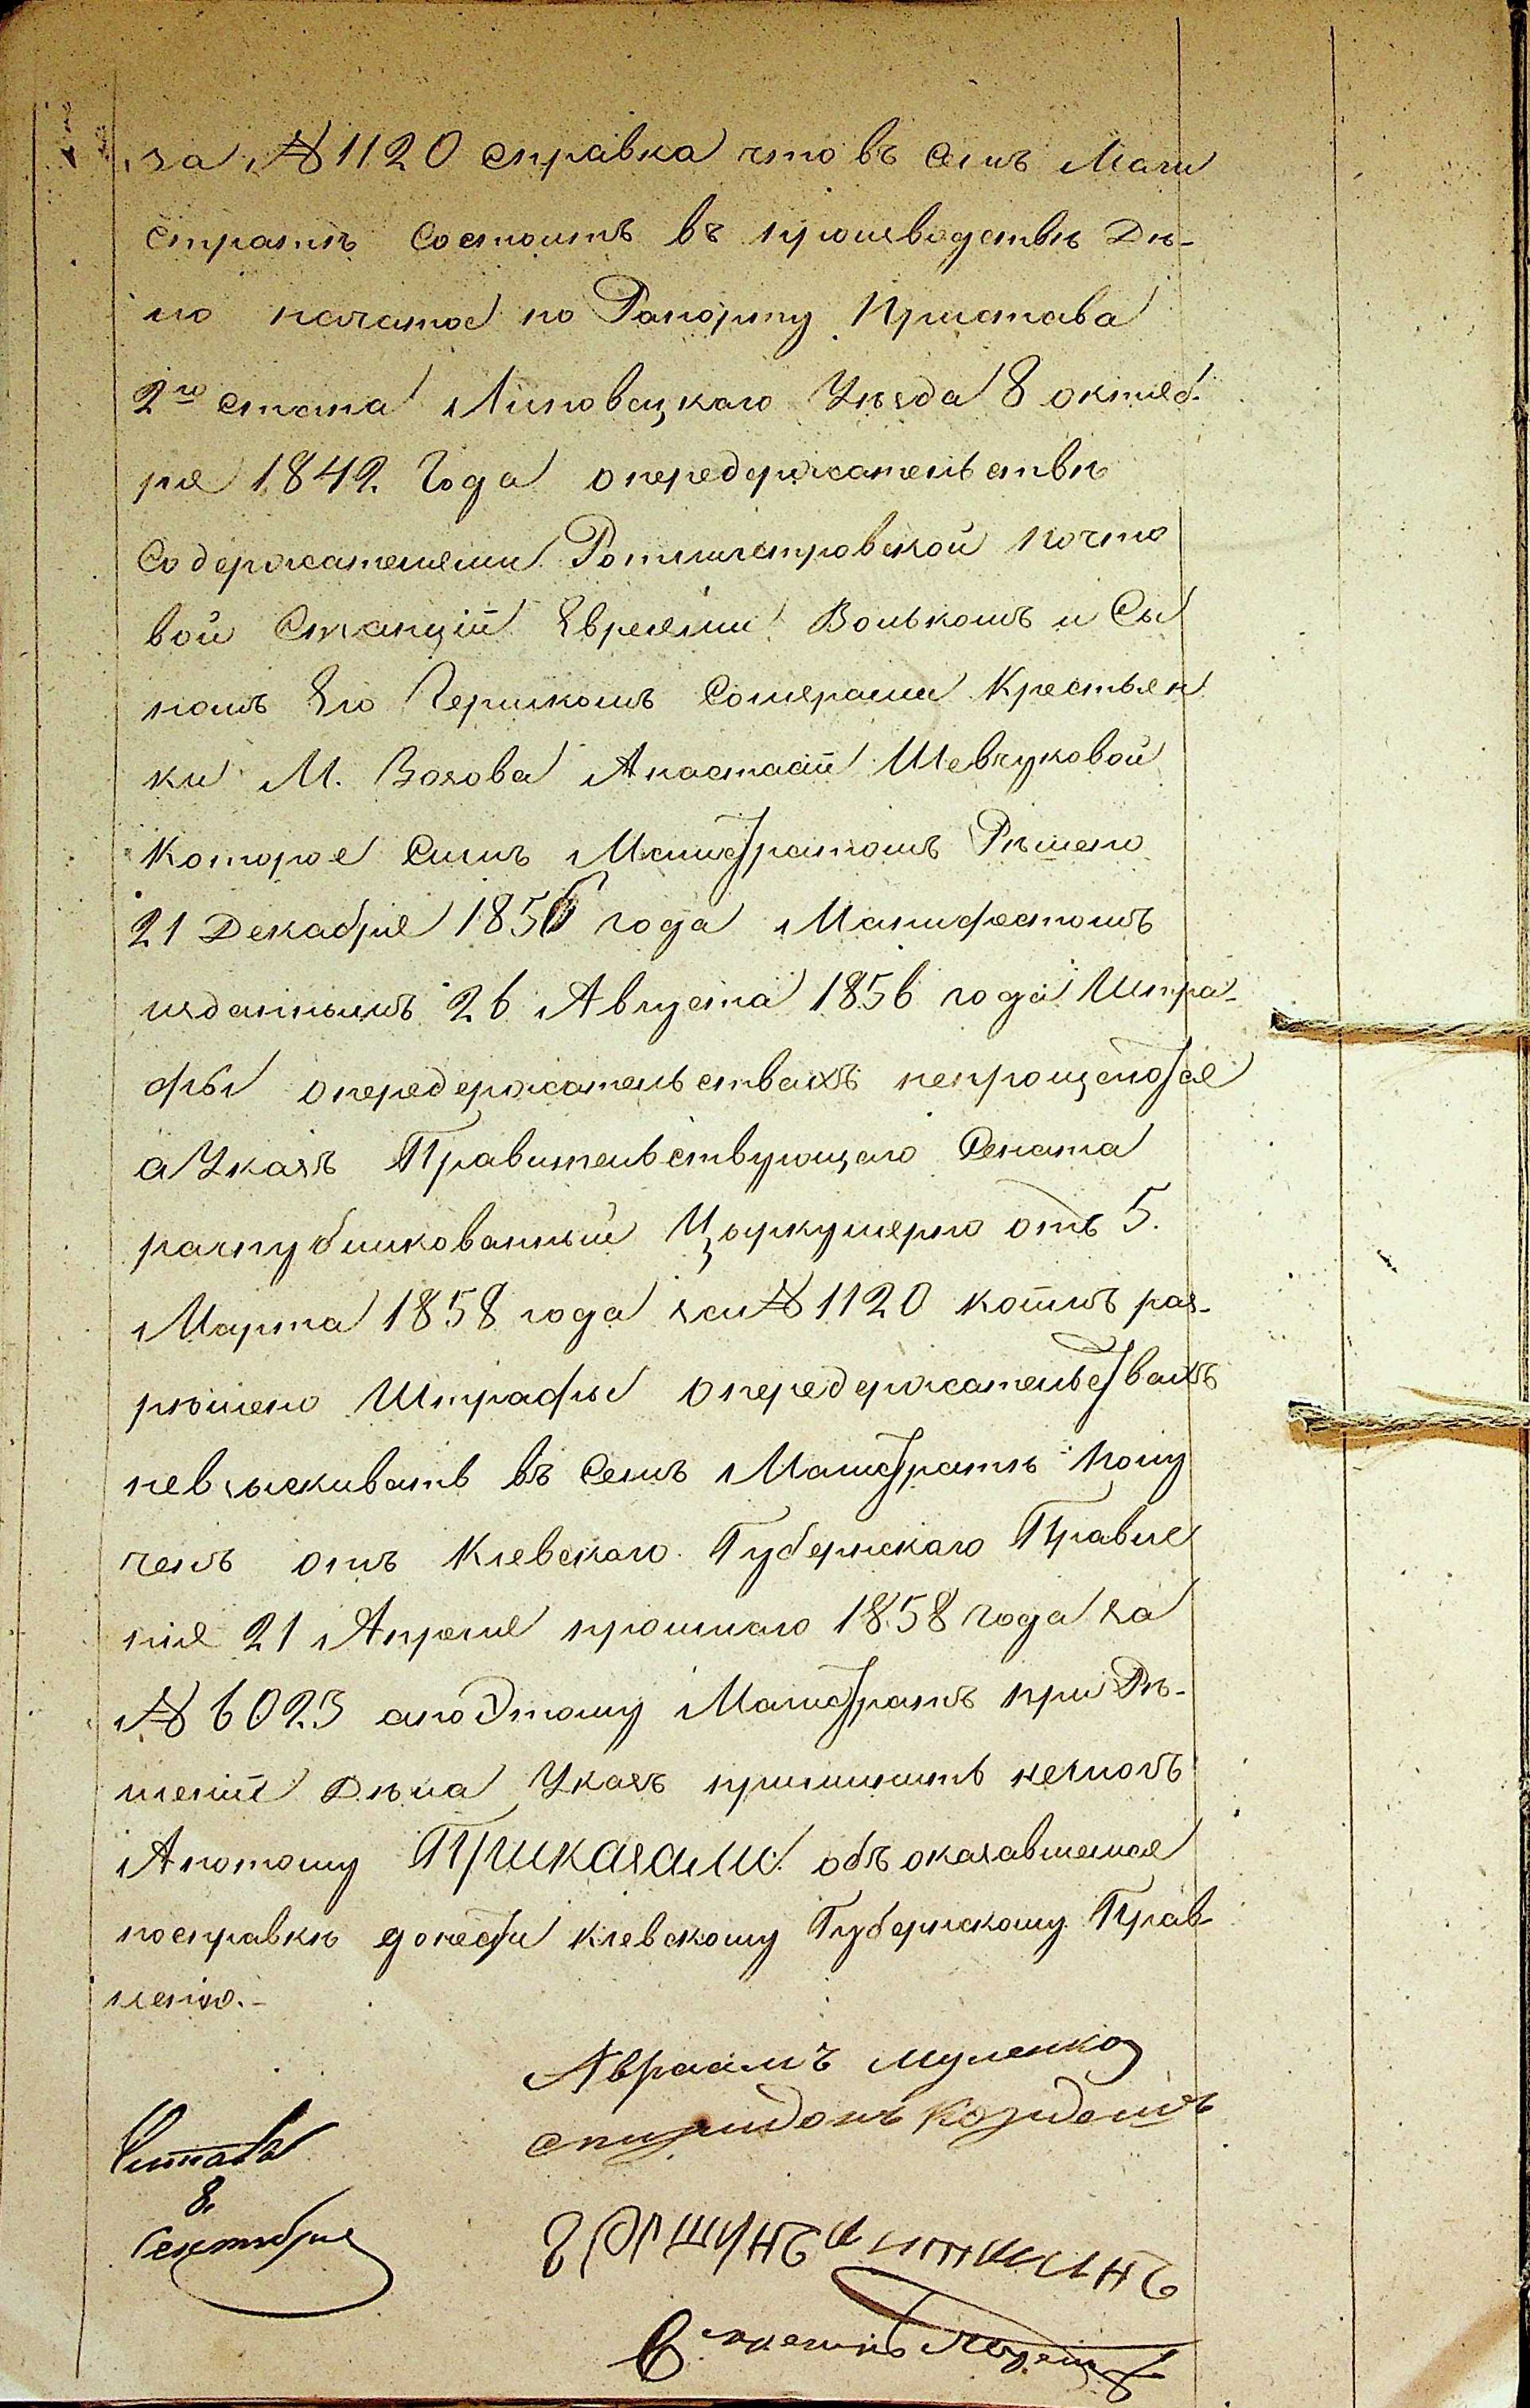 за № 1120 справка что въ семъ Маги
стратѣ состоитъ въ производствѣ Дѣ-
ло начатое по Рапорту Пристава
2го стана Липовецкаго Уѣзда 8 октяб
ря 1842 Года опередержательствѣ
Содержателями Ротмистровской почто
вой Станціи Евреями Волькомъ и Сы
номъ Его Гершкомъ Солерами Крестьян
ки М. Зозова Анастасіи Шевчуковой
Которое симъ Магистратомъ Рѣшено
21 Декабря 1856 года Манифестомъ
изданнымъ 26 Августа 1856 года Штра-
фы опередержательствахъ непрощаются
а Указъ Правительствующаго Сената
разпубликованный Циркулярно отъ 5.
Марта 1858 года за № 1120 коимъ раз-
рѣшено Штрафы опередержательствахъ
невзыскивать въ Семъ Магистратѣ полу
ченъ отъ Кіевскаго Губернскаго Правле
нія 21 Апреля прошлаго 1858 года за
№ 6023 апоЭтому Магистратъ при Рѣ-
шеніи Дѣла Указъ примѣнить немогъ
Апотому Приказали: объ оказавшемся
посправкѣ донести Кіевскому Губернскому Прав-
ленію.-
Авраамъ Муленко
спиридонъ
Читала
8.
Сентября